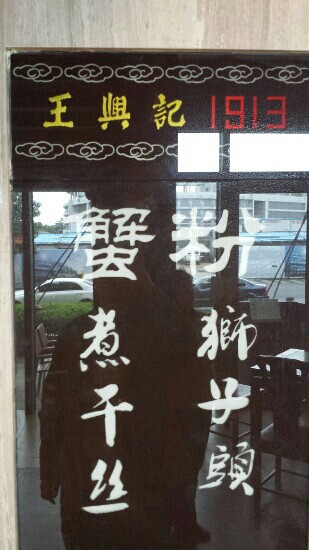 王興記 1913
蟹粉
煮干丝
獅子頭